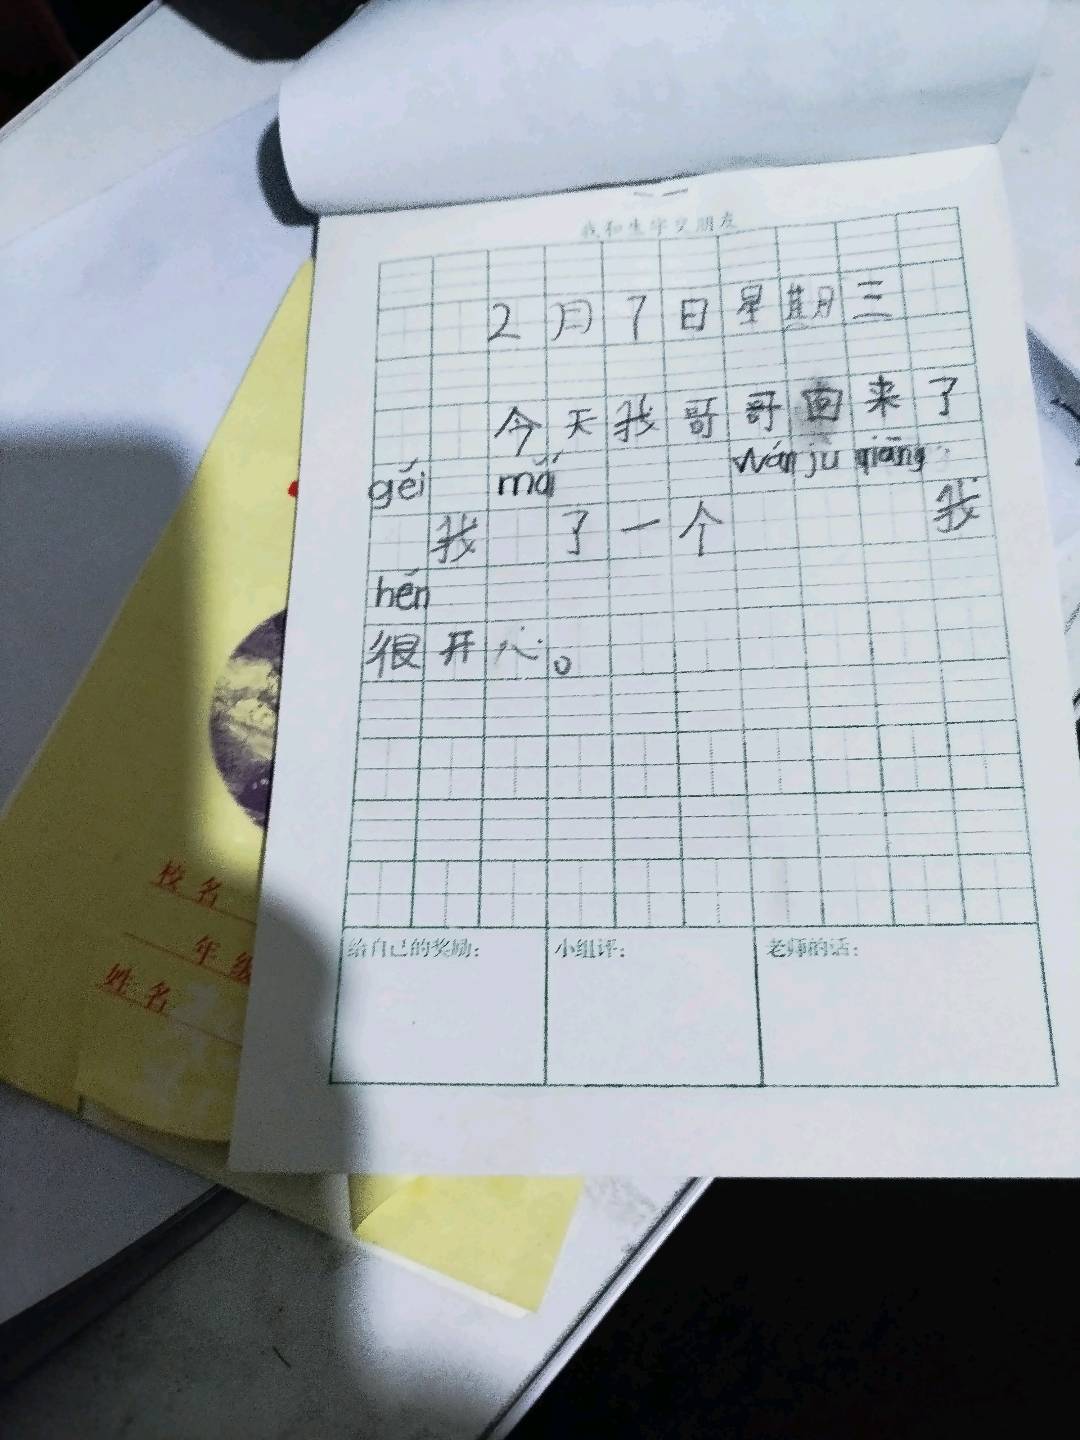 我和生字交朋友
2月7日星期三
今天我哥哥回来了
gěi mǎi wán jù qiāng
我 了一个 我
hěn
很开心。
给自己的奖励: 小组评: 老师的话:
校名
年级
姓名